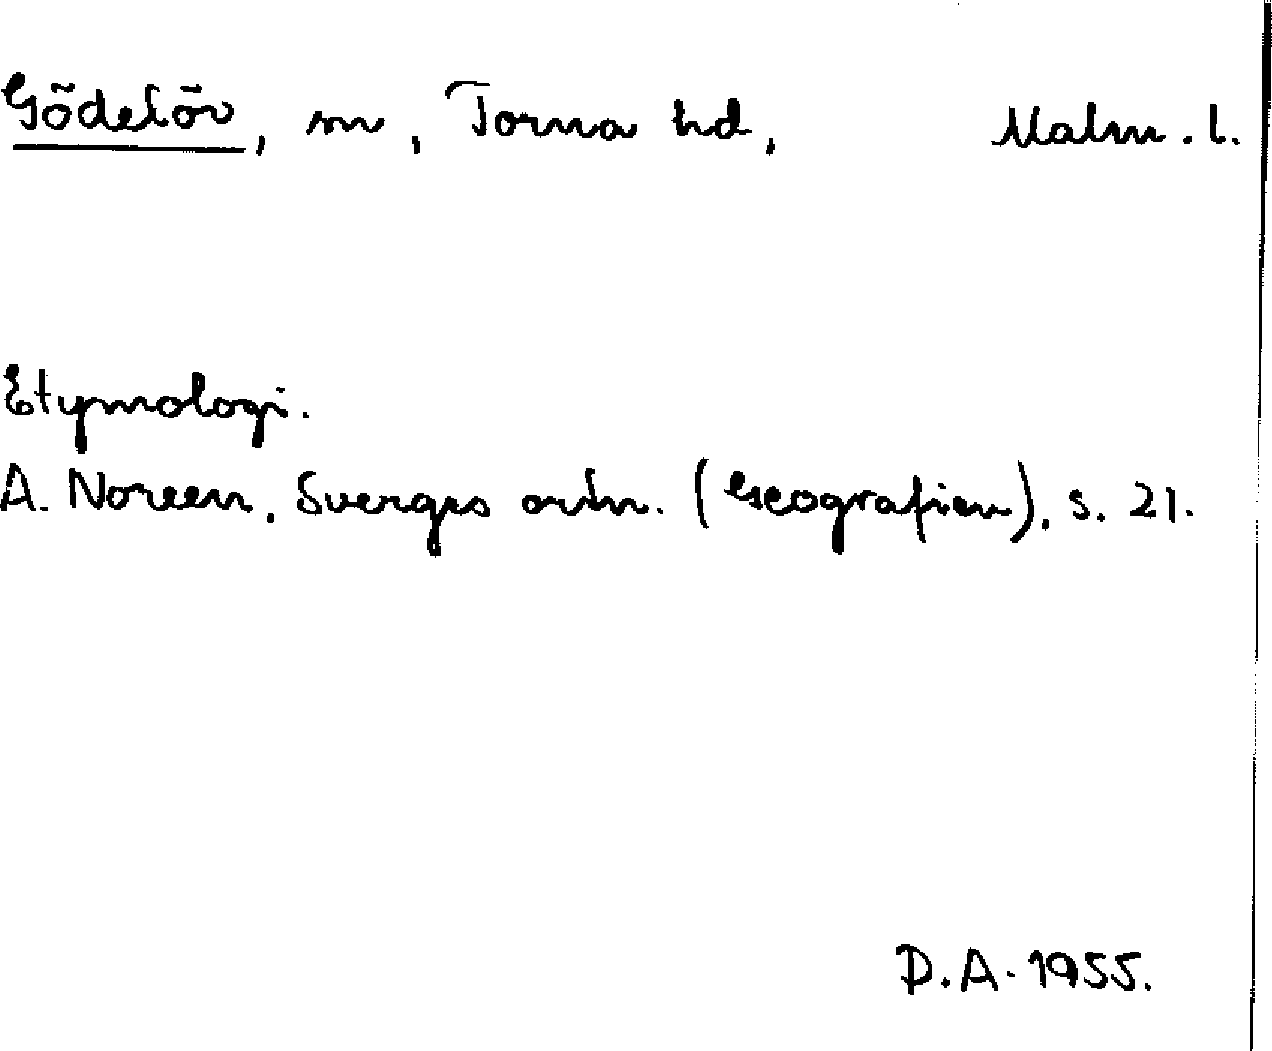 Gödelöv, sn, Torna hd, Malm. l.
Etymologi.
A. Noreen, Sverges ortn. (Geografien), s. 21.
D.A. 1955.